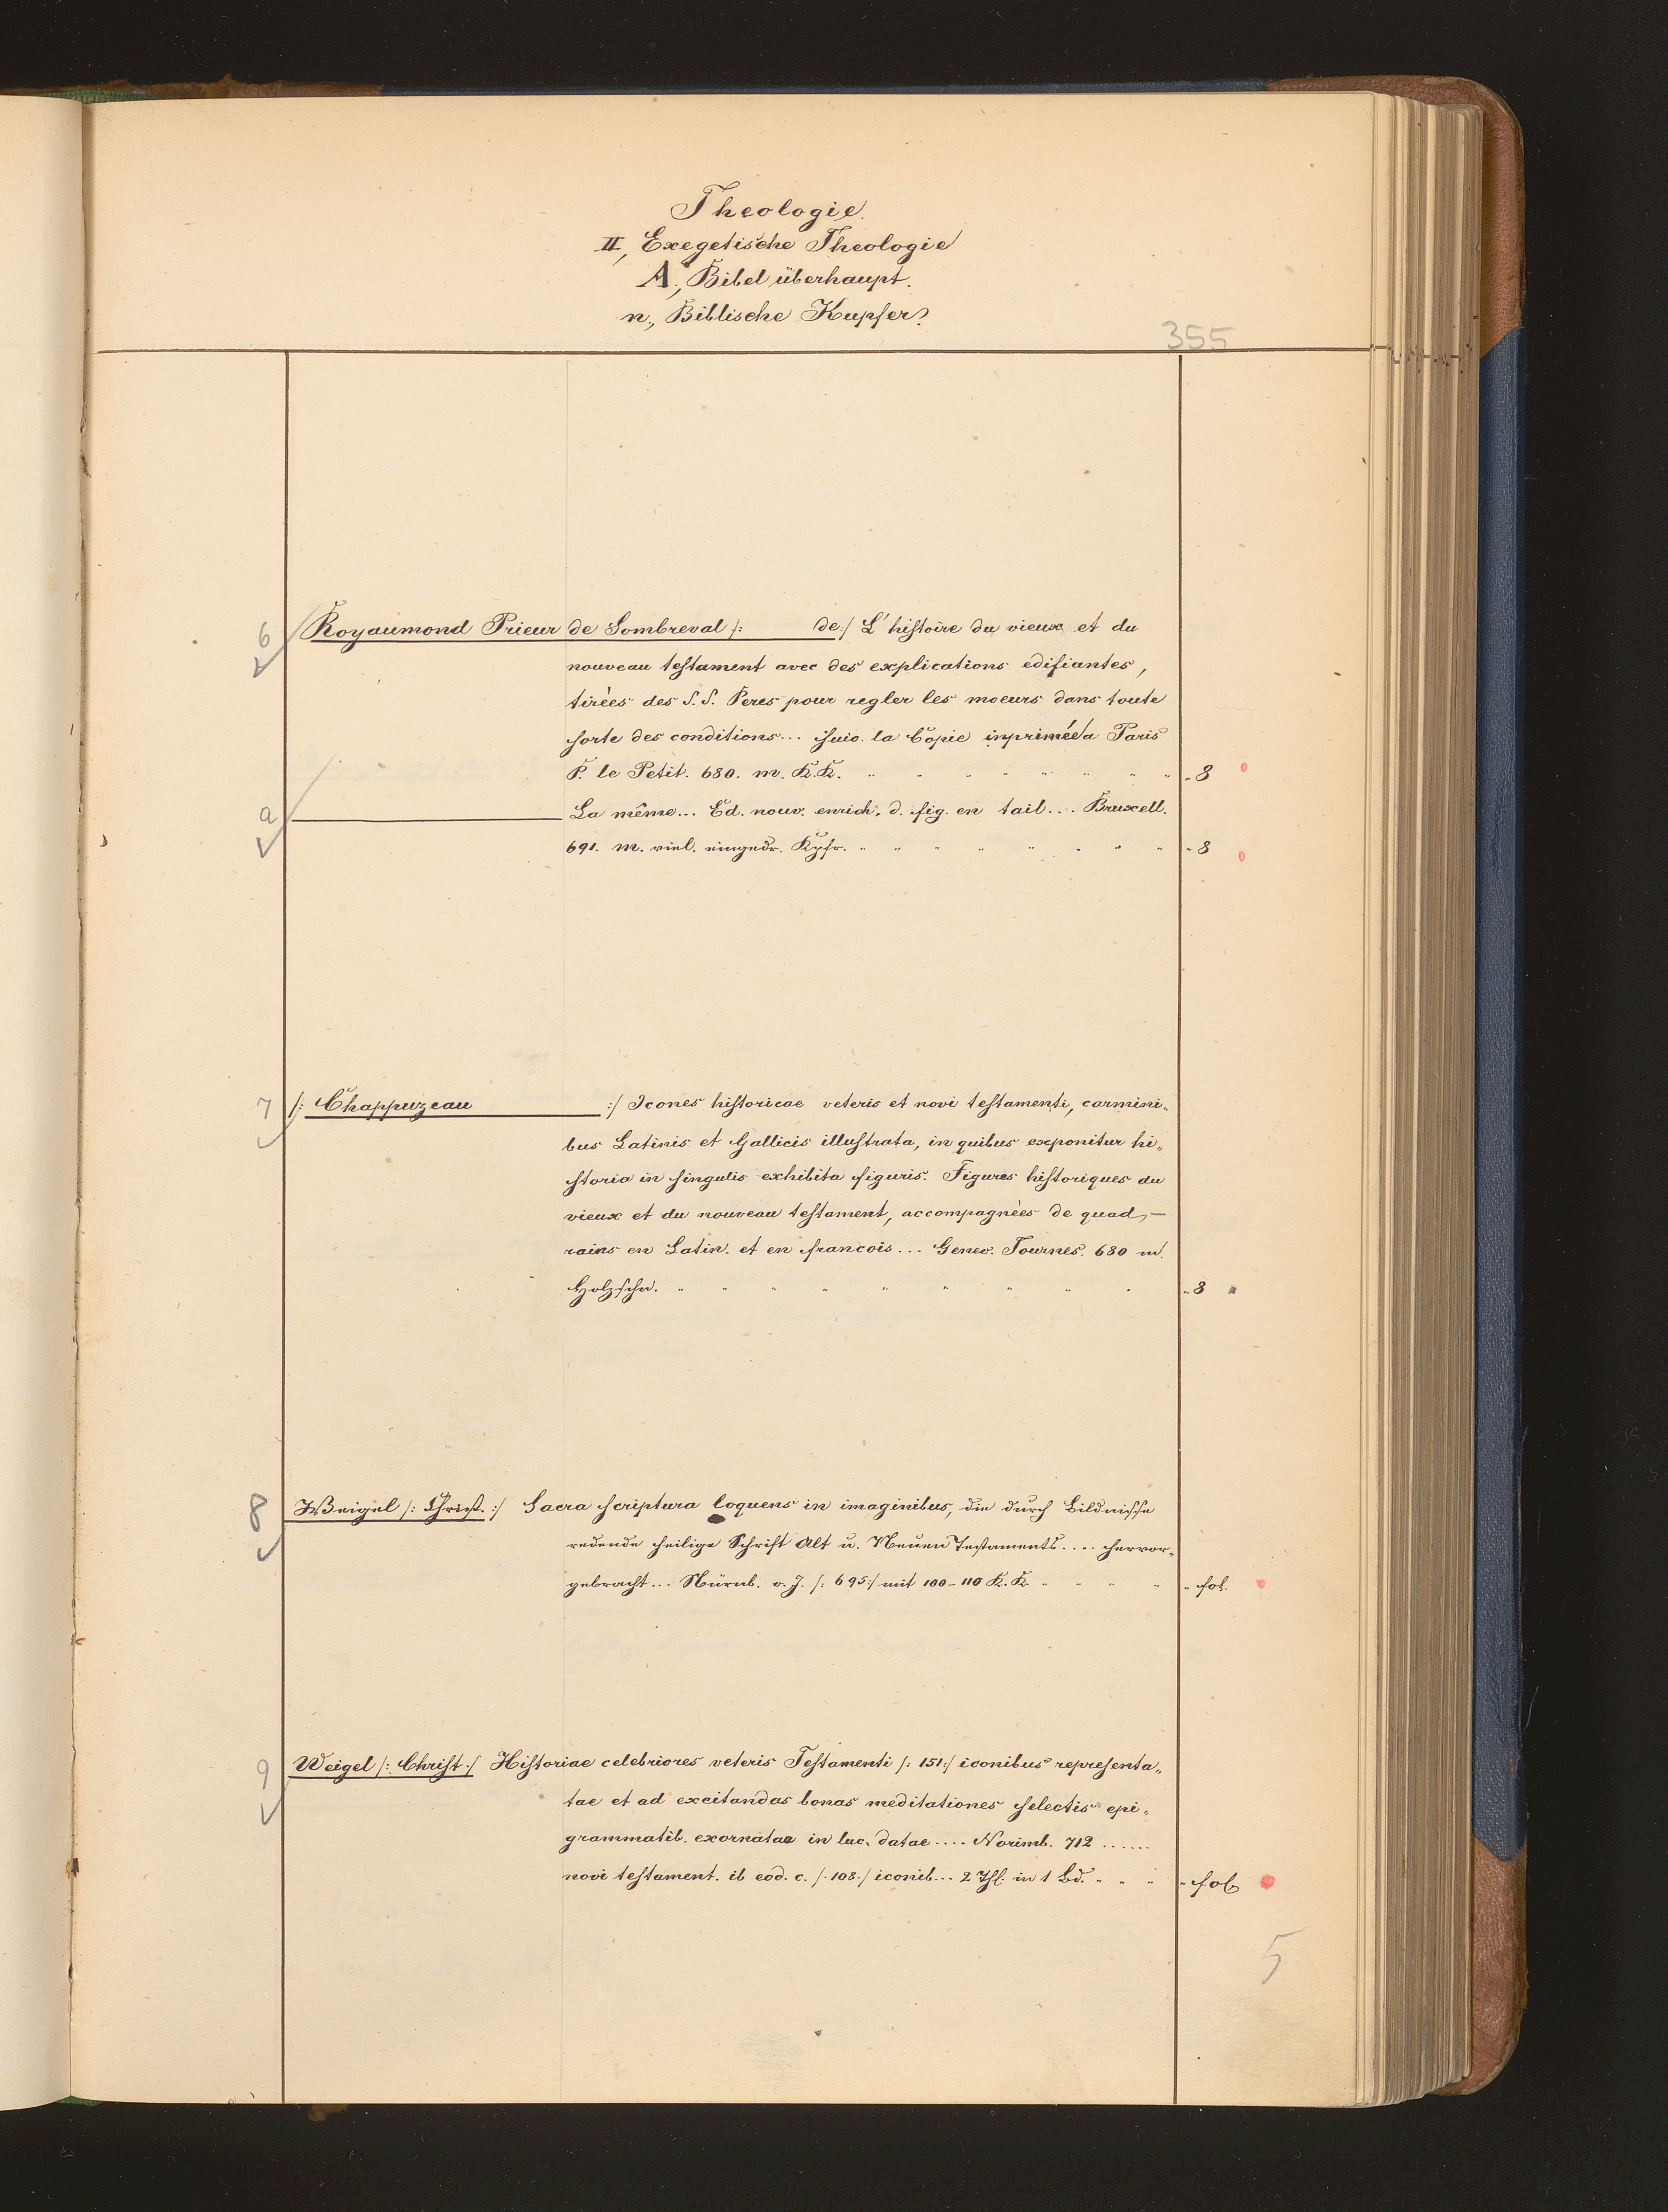 Theologie.
II, Exegetische Theologie
A, Bibel überhaupt.
n, Biblische Kupfer.
355
6 Royaumond Prieur de Sombreval /: de:/ L'histoire du vieux et du
nouveau testament avec des explications edifiantes,
tirées des S.S. Peres pour regler les moeurs dans toute
sorte des conditions... suiv. la Copie inprimée a Paris
P. le Petit. 680. m. K.K. " 8
a La même... Ed. nouv. enrich. d. fig. en tail... Bruxell.
691. m. viel. eingedr. Kpfr. " 8
7 /: Chappuzeau :/ Icones historicae veteris et novi testamenti, carmini„
bus Latinis et Gallicis illustrata, in quibus exponitur hi„
storia in singulis exhibita figuris. Figures historiques du
vieux et du nouveau testament, accompagnées de quad,—
rains en Latin. et en francois... Genev. Tournes. 680 m.
Holzschn. " 8
8 Weigel /: Christ. :/ Sacra scriptura loquens in imaginibus, die durch Bildnisse
redende heilige Schrift Alt u. Neuen Testaments.... hervor„
gebracht... Nürnb. o. J. /: 695:/ mit 100-110 K.K. " fol.
9 Weigel /: Christ:/ Historiae celebriores veteris Testamenti /: 151:/ iconibus representa„
tae et ad excitandas bonas meditationes selectis epi„
grammatib. exornatae in luc. datae.... Norimb. 712......
novi testament. ib eod. c. /: 108:/ iconib... 2 Thl. in 1 Bd. " fol.
5